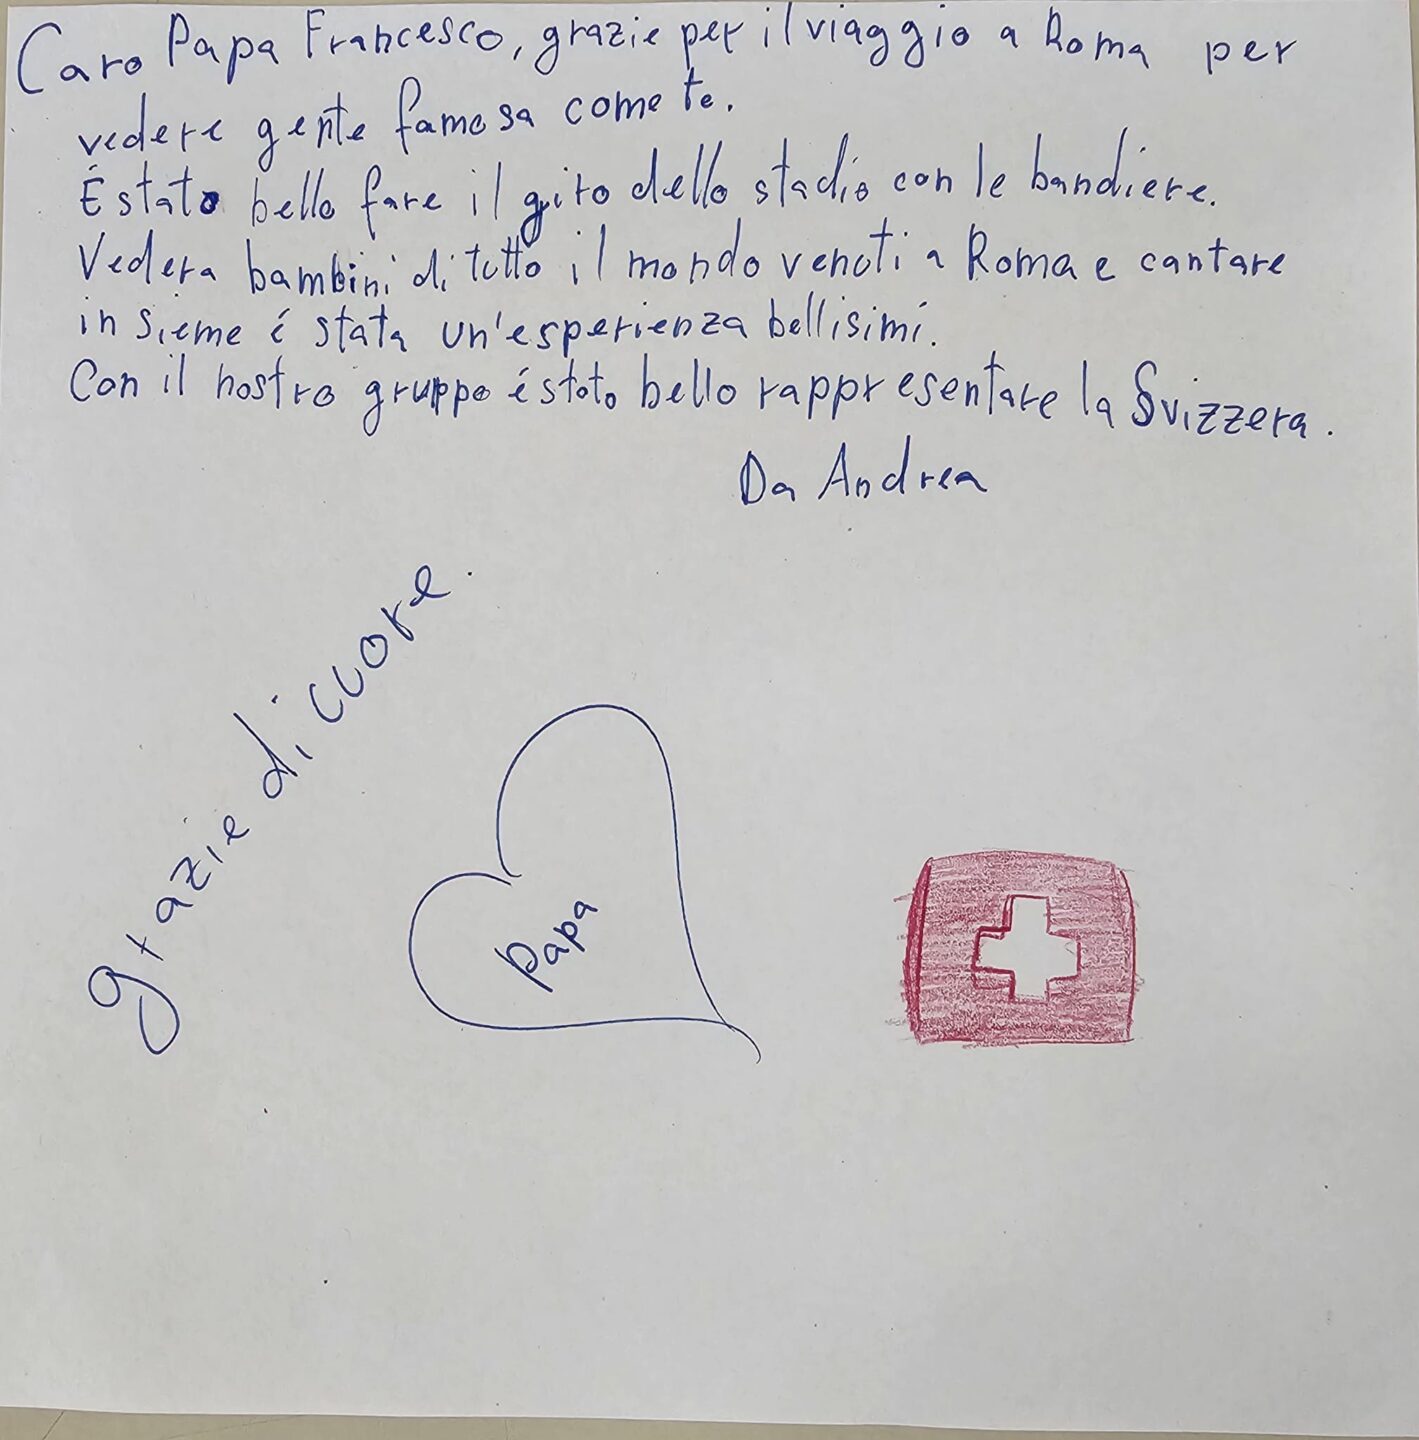 Caro Papa Francesco, grazie per il viaggio a Roma per
vedere gente famosa come te.
É stato bello fare il giro dello stadio con le bandiere.
Vedera bambini di tutto il mondo venuti a Roma e cantare
insieme é stata un'esperienza bellisimi.
Con il nostro gruppo é stato bello rappresentare la Svizzera.
Da Andrea
grazie di cuore.
Papa